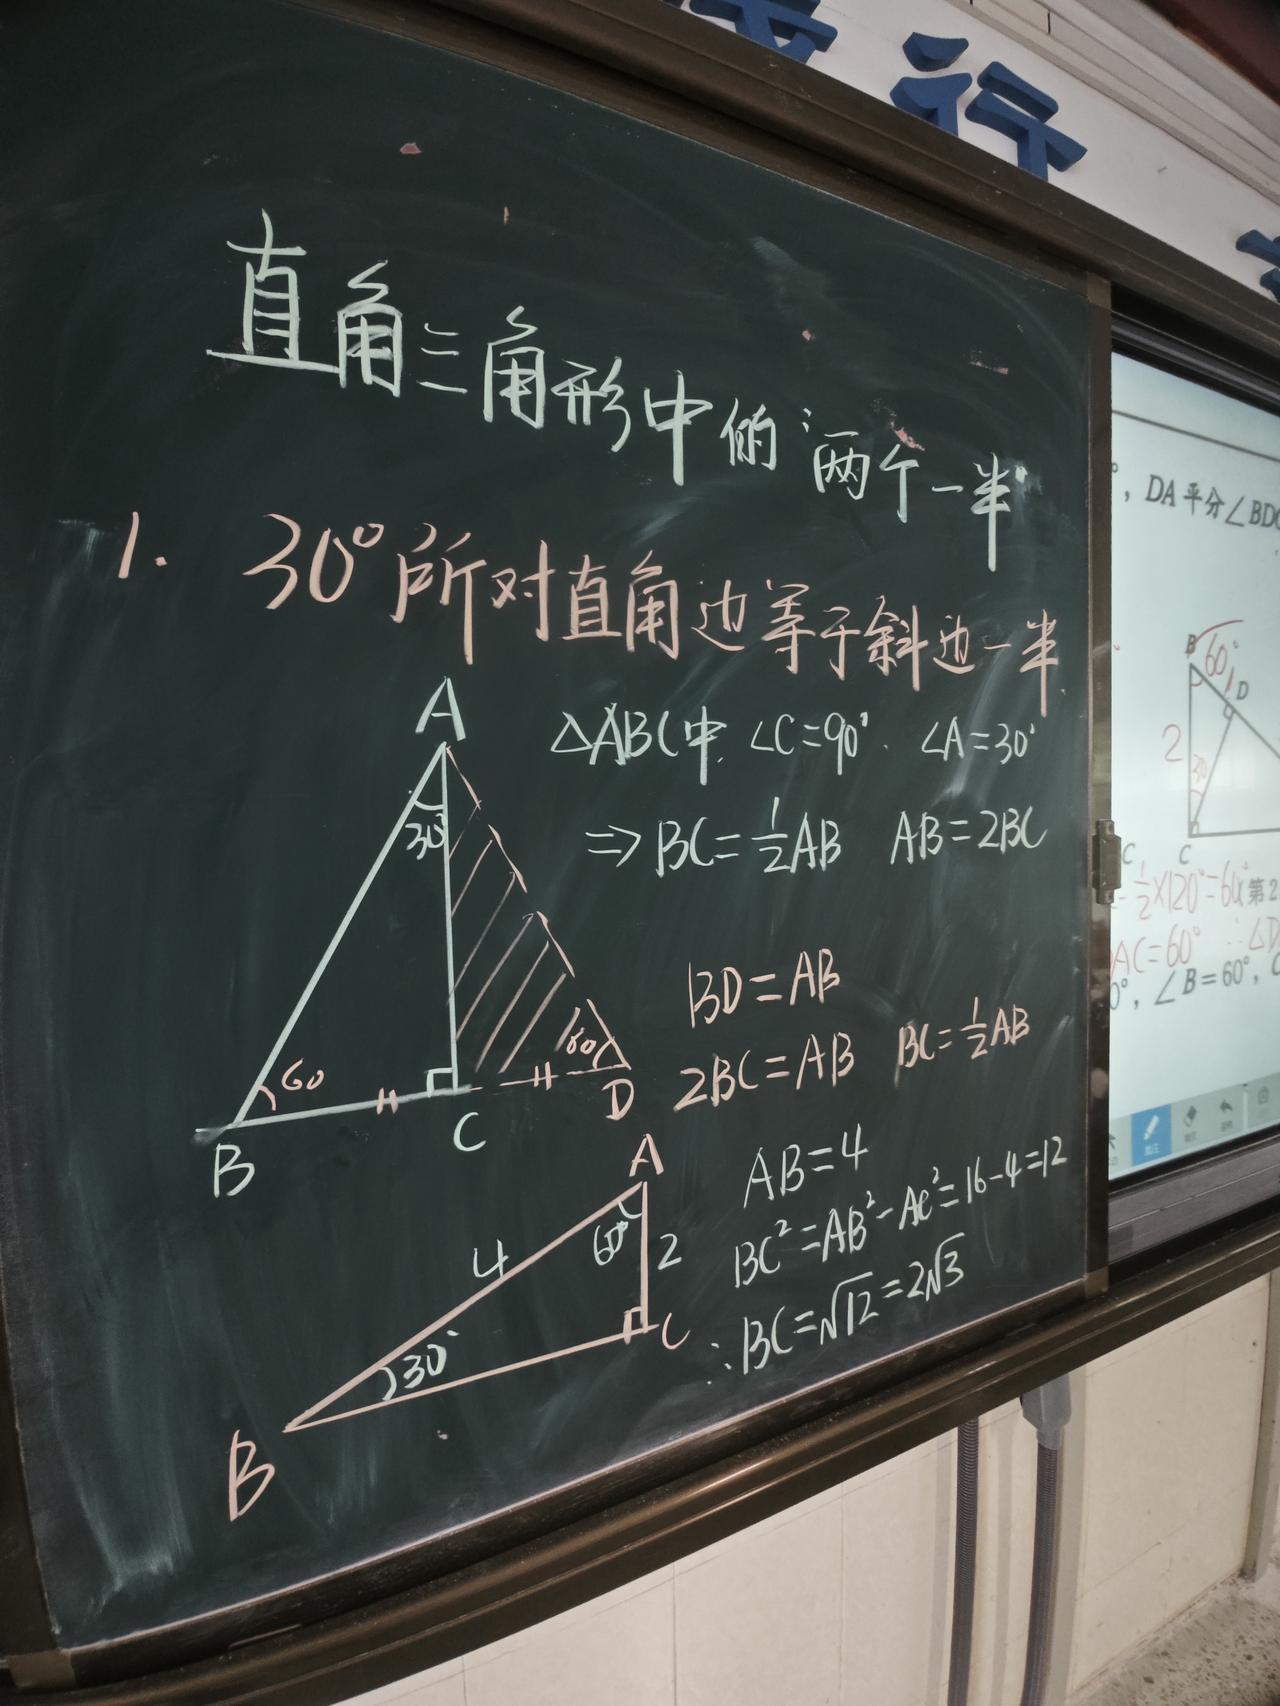 行
直角三角形中的“两个一半”
1. 30°所对直角边等于斜边一半
△ABC中, ∠C=90°. ∠A=30°
⇒ BC=½AB AB=2BC
A
30°
60
60
B
C
D
BD=AB
2BC=AB BC=½AB
A
60°
4
2
30°
B
C
AB=4
BC²=AB²-AC²=16-4=12
∴BC=√12=2√3
°, DA平分∠BDC
B
60°
1
D
2
30
C
C
=½×120°=60° 第2
AC=60° ∴△D
0°, ∠B=60°, C